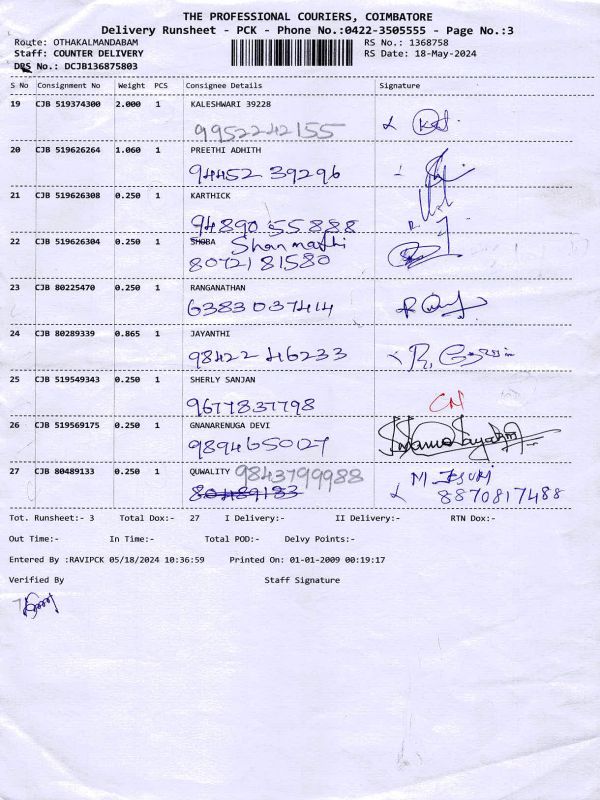 THE PROFESSIONAL COURIERS, COIMBATORE
Delivery Runsheet - PCK - Phone No.:0422-3505555 - Page No.:3
Route: OTHAKALMANDABAM RS No.: 1368758
Staff: COUNTER DELIVERY RS Date: 18-May-2024
DRS No.: DCJB136875803
S No Consignment No Weight PCS Consignee Details Signature
19 CJB 519374300 2.000 1 KALESHWARI 39228
9952242155
20 CJB 519626264 1.060 1 PREETHI ADHITH
94452 39296
21 CJB 519626308 0.250 1 KARTHICK
94890 55888
22 CJB 519626304 0.250 1 SHOBA Shanmathi
80721 81580
23 CJB 80225470 0.250 1 RANGANATHAN
6383037414
24 CJB 80289339 0.865 1 JAYANTHI
98422 46233
25 CJB 519549343 0.250 1 SHERLY SANJAN
9677837798 CN
26 CJB 519569175 0.250 1 GNANARENUGA DEVI
9894650127
27 CJB 80489133 0.250 1 QUWALITY 9843799988
80489133 8870817488
Tot. Runsheet:- 3 Total Dox:- 27 I Delivery:- II Delivery:- RTN Dox:-
Out Time:- In Time:- Total POD:- Delvy Points:-
Entered By :RAVIPCK 05/18/2024 10:36:59 Printed On: 01-01-2009 00:19:17
Verified By Staff Signature